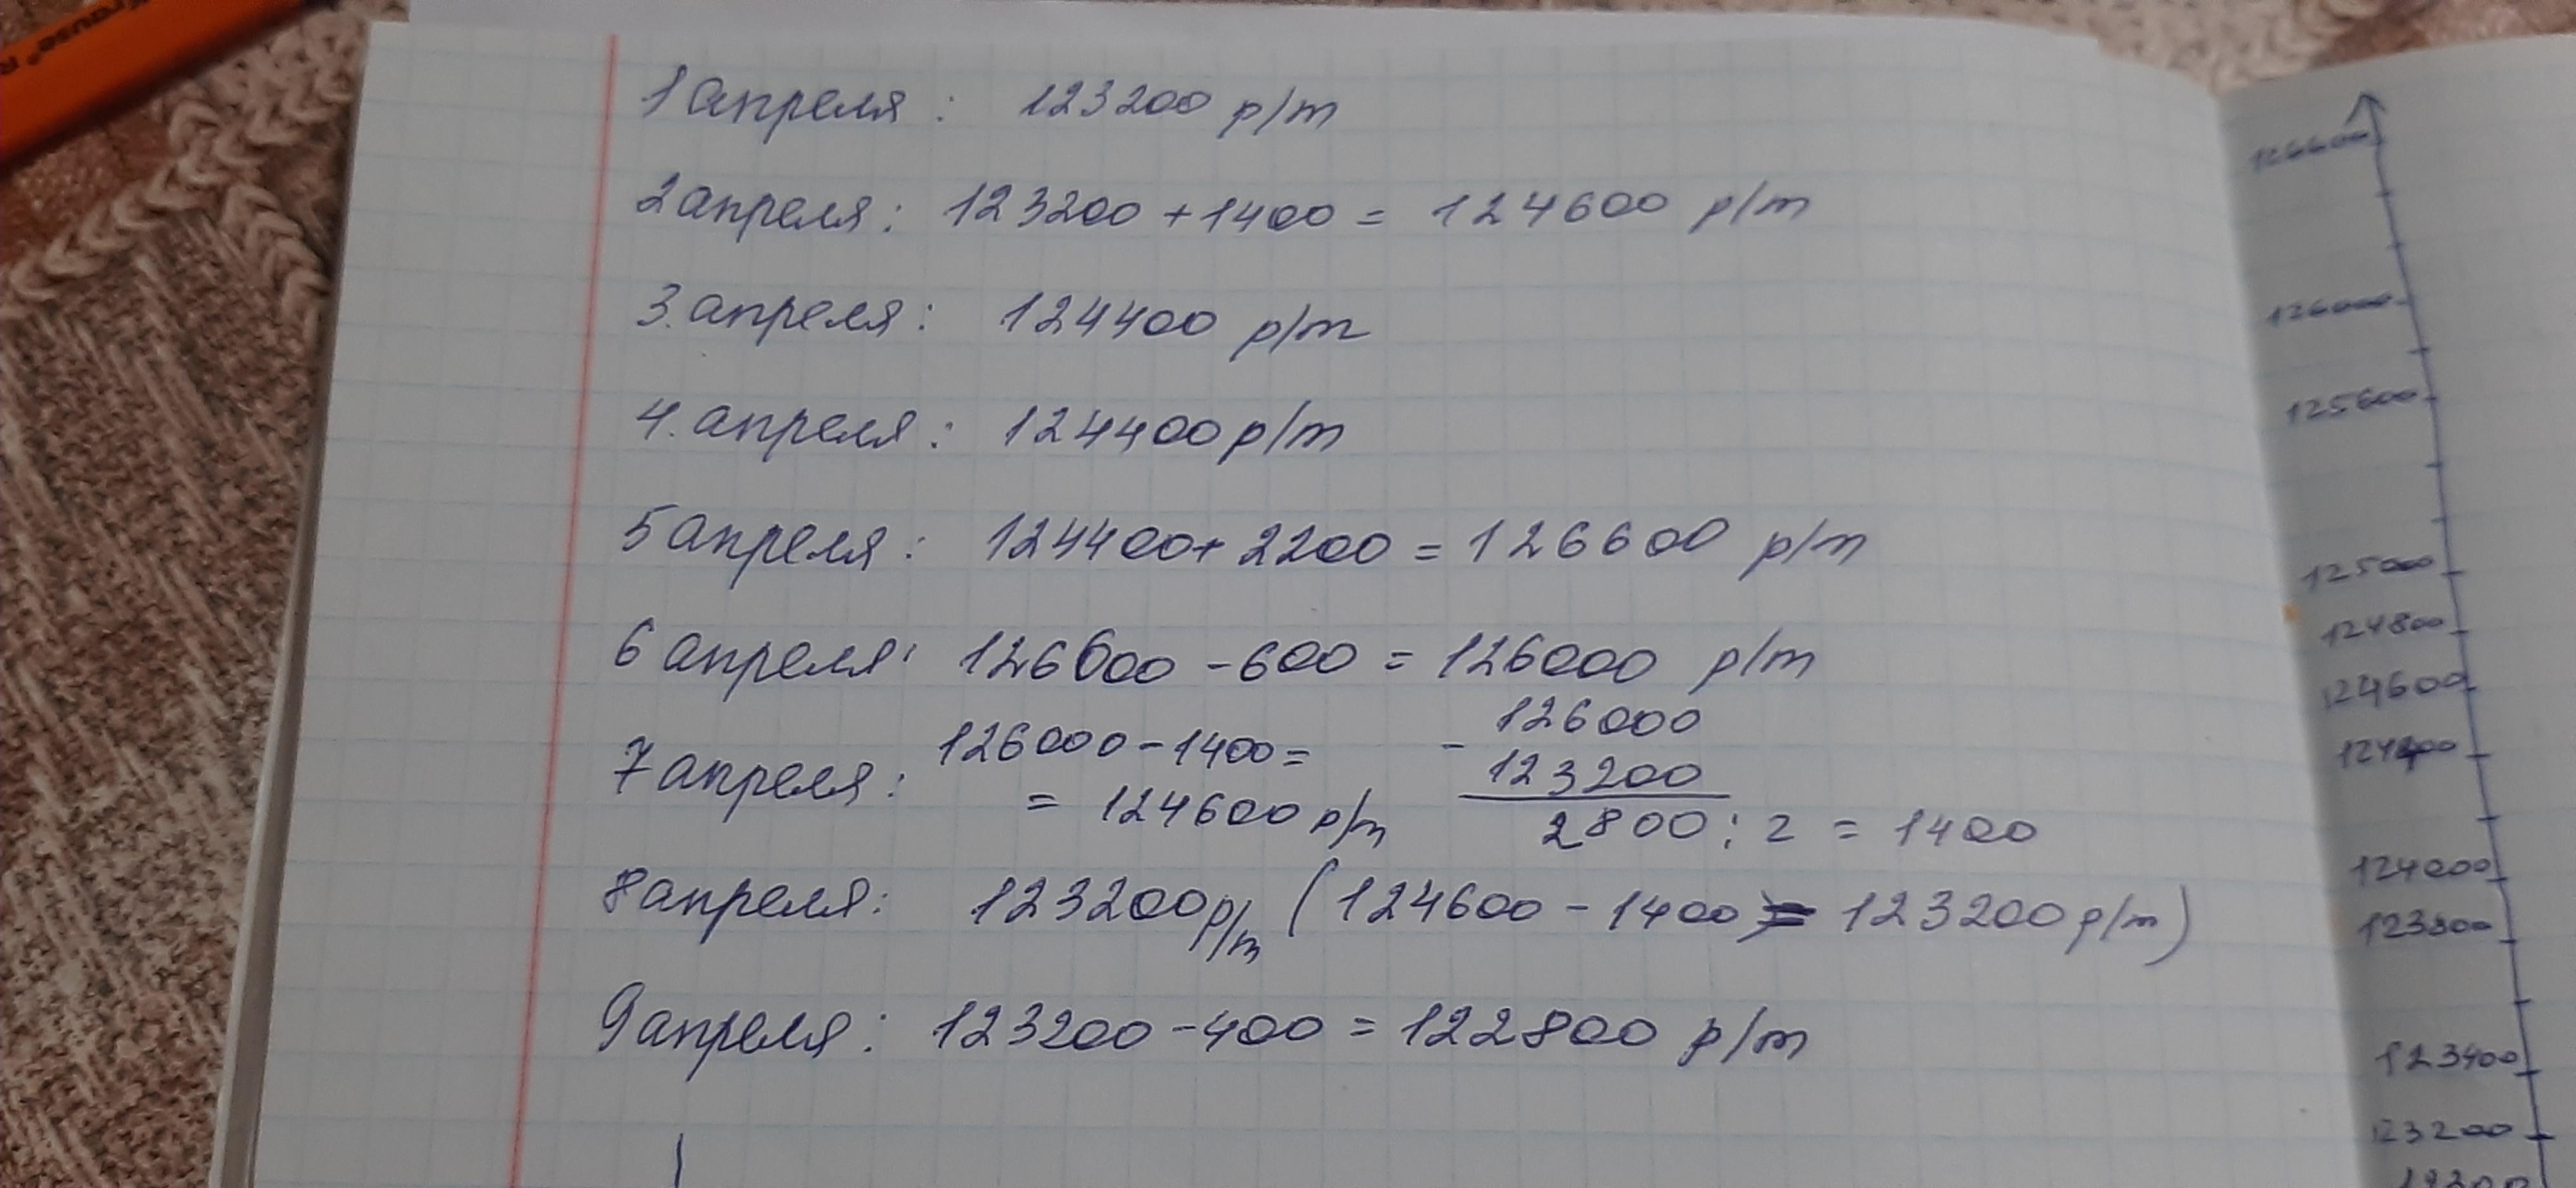 Krause® R
1 апреля: 123200 р/т
2 апреля: 123200 + 1400 = 124600 р/т
3. апреля: 124400 р/т
4. апреля: 124400 р/т
5 апреля: 124400 + 2200 = 126600 р/т
6 апреля: 126600 - 600 = 126000 р/т
7 апреля: 126000 - 1400 =
= 124600 р/т
- 126000
123200
2800 : 2 = 1400
8 апреля: 123200 р/т (124600 - 1400 = 123200 р/т)
9 апреля: 123200 - 400 = 122800 р/т
126600
126000
125600
125000
124800
124600
124400
124000
123800
123400
123200